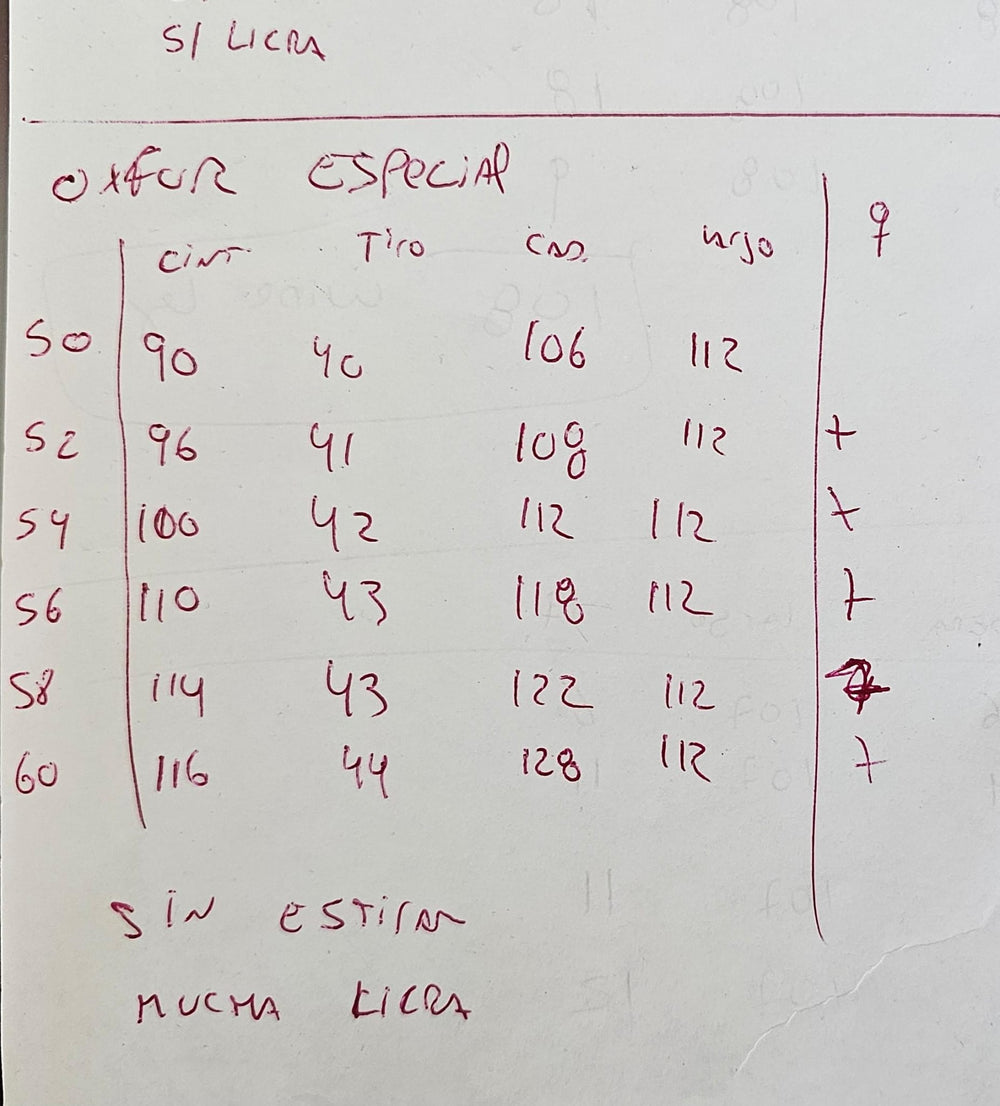 S/ LICRA
OXFOR ESPECIAL
CINT TIRO CAD. LARGO
50 90 40 106 112
52 96 41 108 112 +
54 100 42 112 112 +
56 110 43 118 112 +
58 114 43 122 112
60 116 44 128 112 +
SIN ESTIRAR
MUCHA LICRA